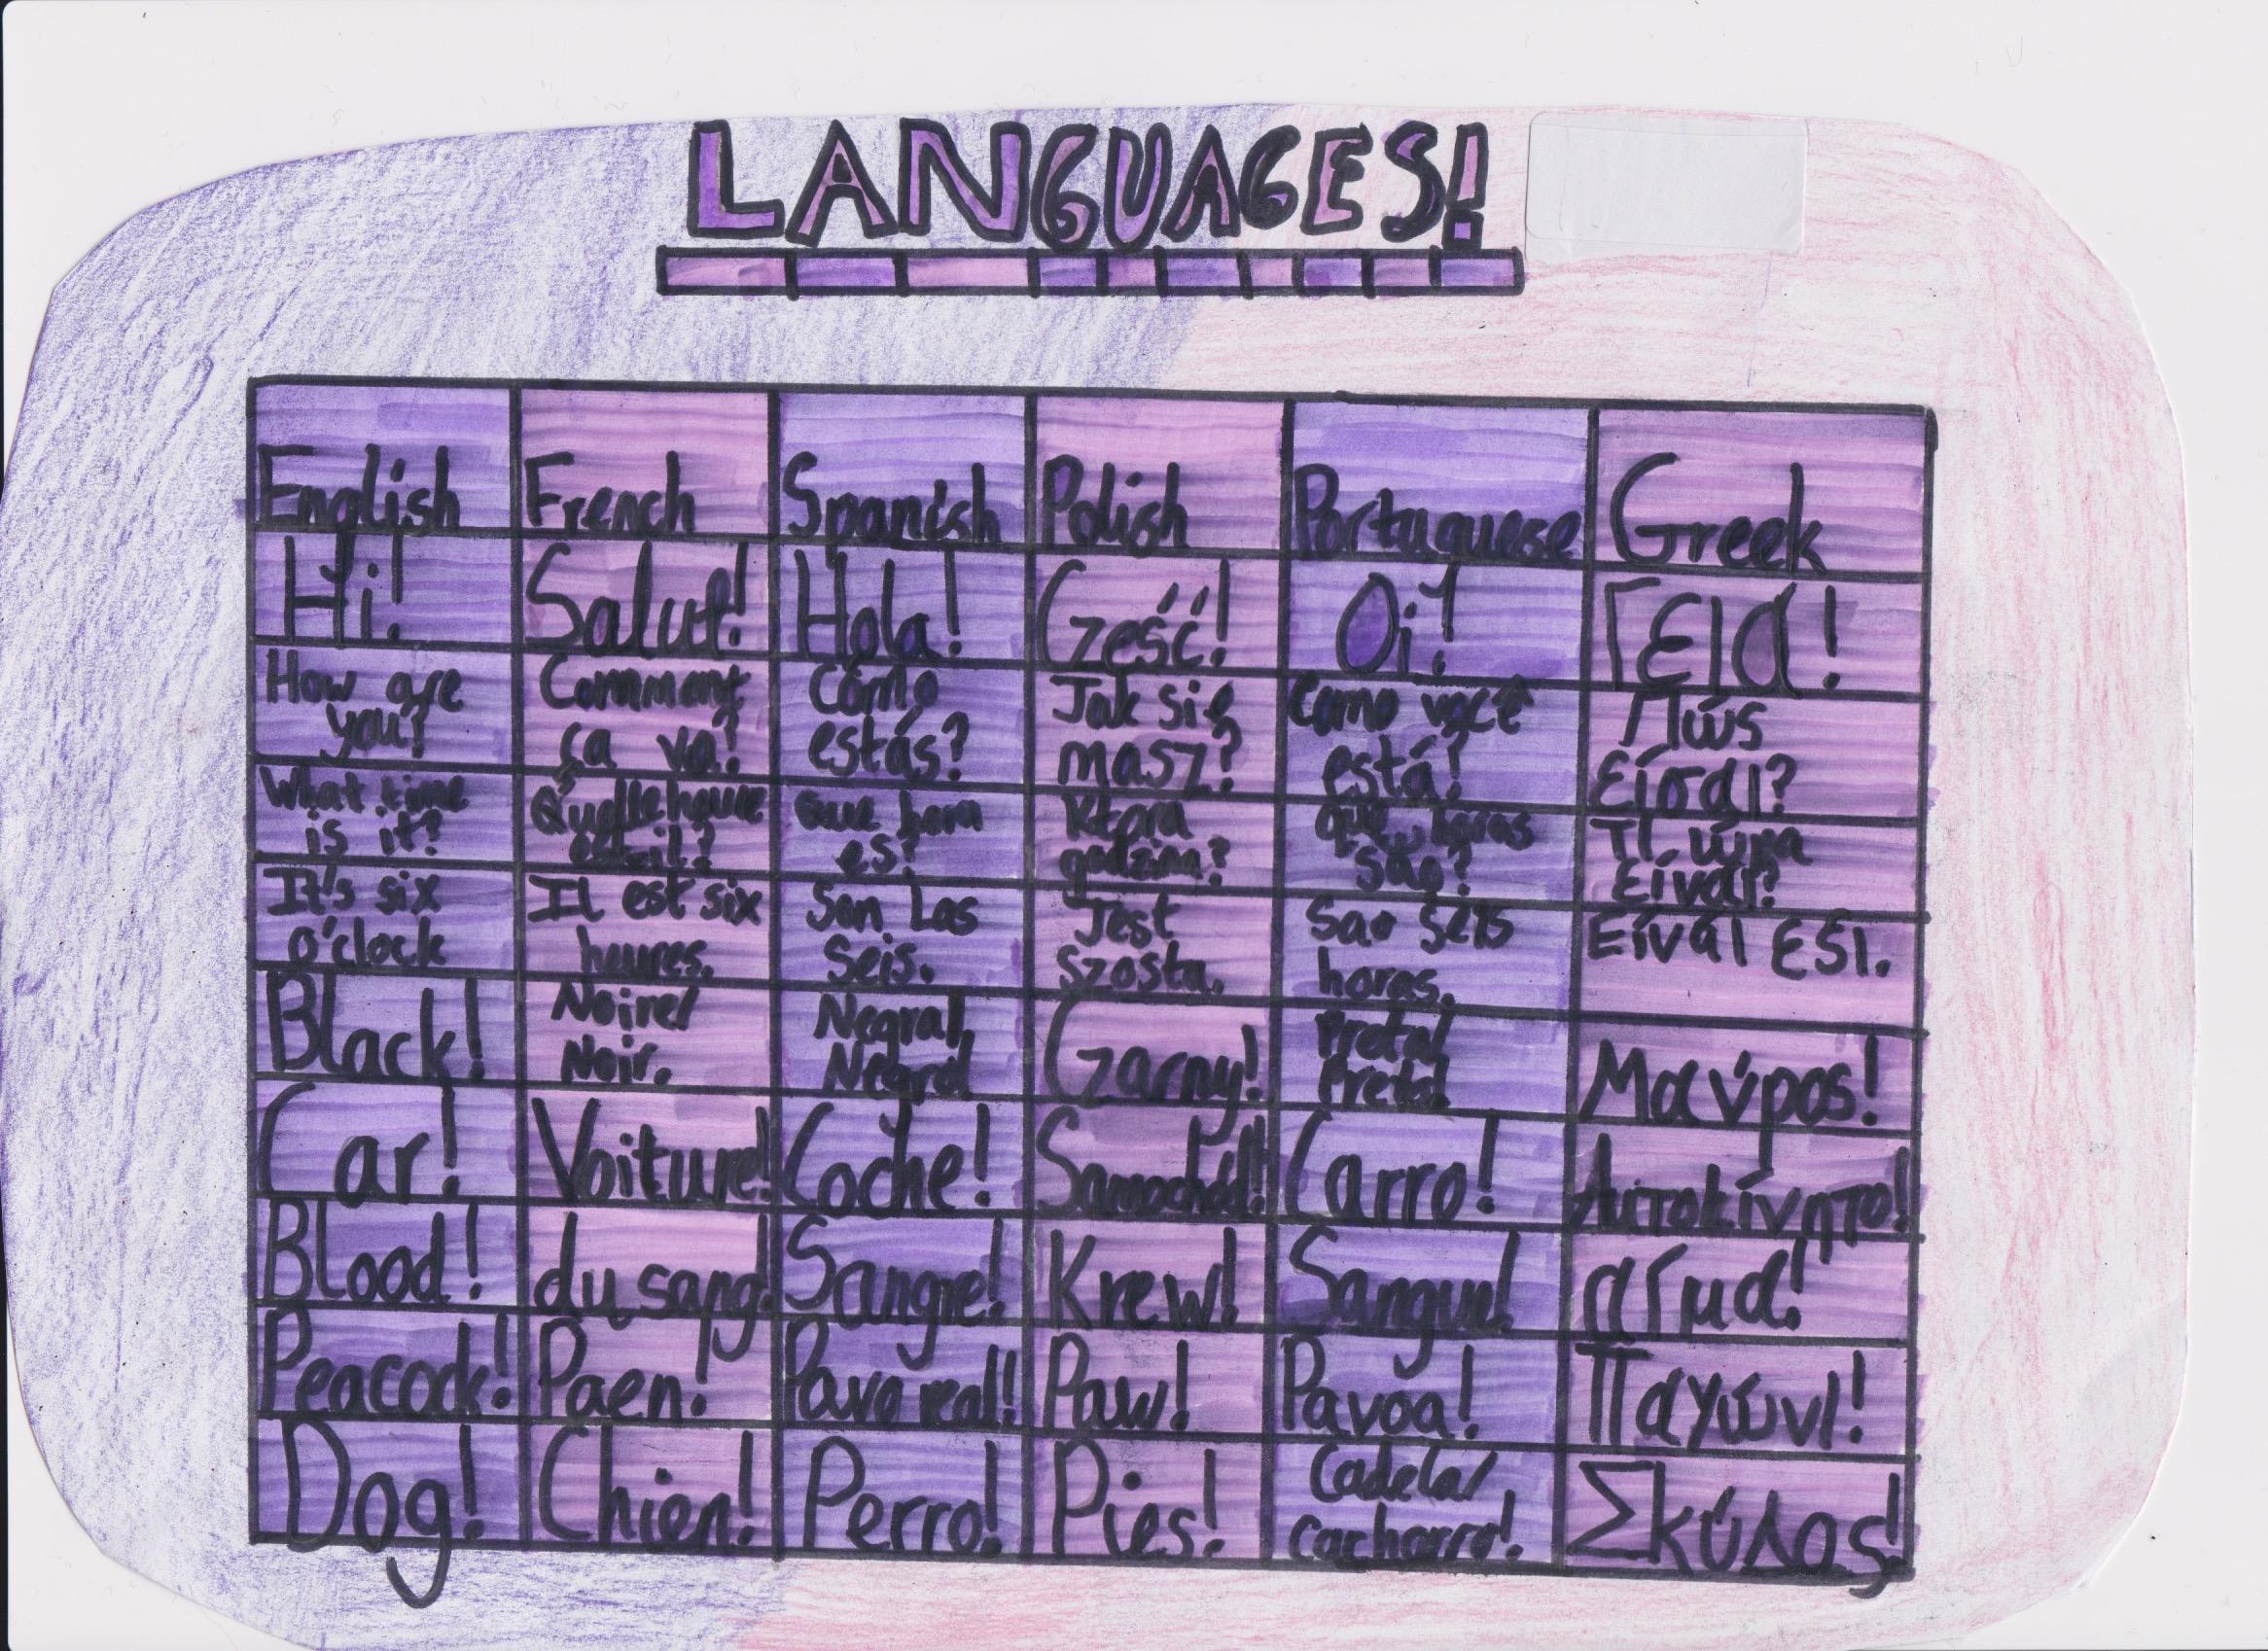 LANGUAGES!
English French Spanish Polish Portuguese Greek
Hi! Salut! Hola! Cześć! Oi! Γεια!
How are you? Comment ça va? Cómo estás? Jak się masz? Como você está? Πώς είσαι?
What time is it? Quelle heure est-il? Que hora es? Ktora godzina? Que horas são? Τί ώρα είναι?
It's six o'clock Il est six heures. Son Las Seis. Jest szosta. Sao seis horas. Είναι εξι.
Black! Noire/ Noir. Negra/ Negro! Czarny! Preta/ Preto! Μαύρος!
Car! Voiture! Coche! Samochód! Carro! Αυτοκίνητο!
Blood! du sang! Sangre! Krew! αίμα!
Peacock! Paen! Pavo real! Paw! Pavoa! Παγώνι!
Dog! Chien! Perro! Pies! Cadela/ cachorro! Σκύλος!